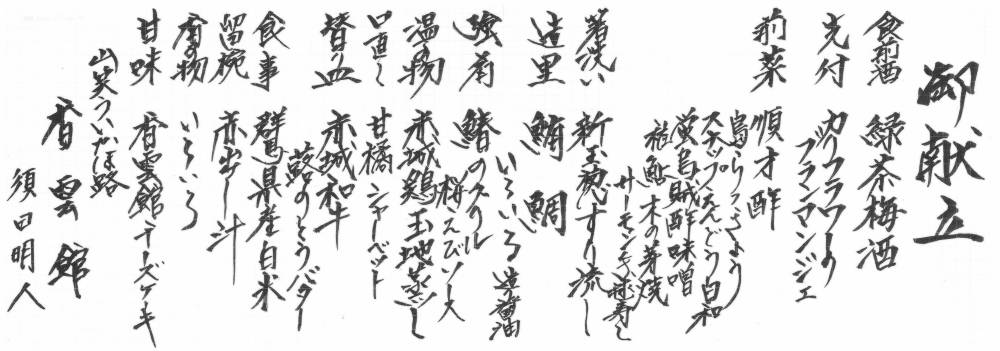 御献立
食前酒 緑茶梅酒
先付 カリフラワーの
ブランマンジェ
前菜 順才酢
島らっきょう
スナップえんどう白和
蛍烏賊酢味噌
稚鮎木の芽焼
サーモン手毬寿し
箸洗い 新玉葱すり流し
造里 鮪 鯛
いろいろ 造醤油
強肴 鰆のスフル
桜えびソース
温物 赤城鶏玉地蒸し
口直し 甘橘シャーベット
替り皿 赤城和牛
蕗のとうバター
食事 群馬県産白米
留椀 赤出し汁
香の物 いろいろ
甘味 香雲館チーズケーキ
山笑ういかほ路
香雲館
須田明人